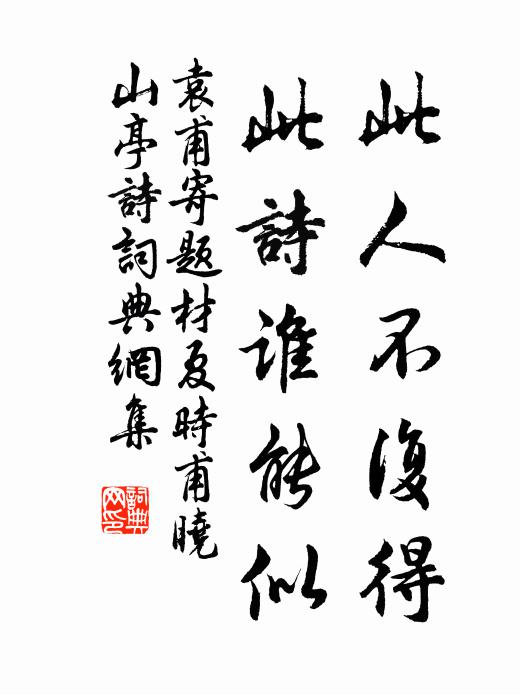 此人不復得
此詩誰能似
袁甫寄題材夏時甫曉
山亭詩詞典網集
詞典
网印